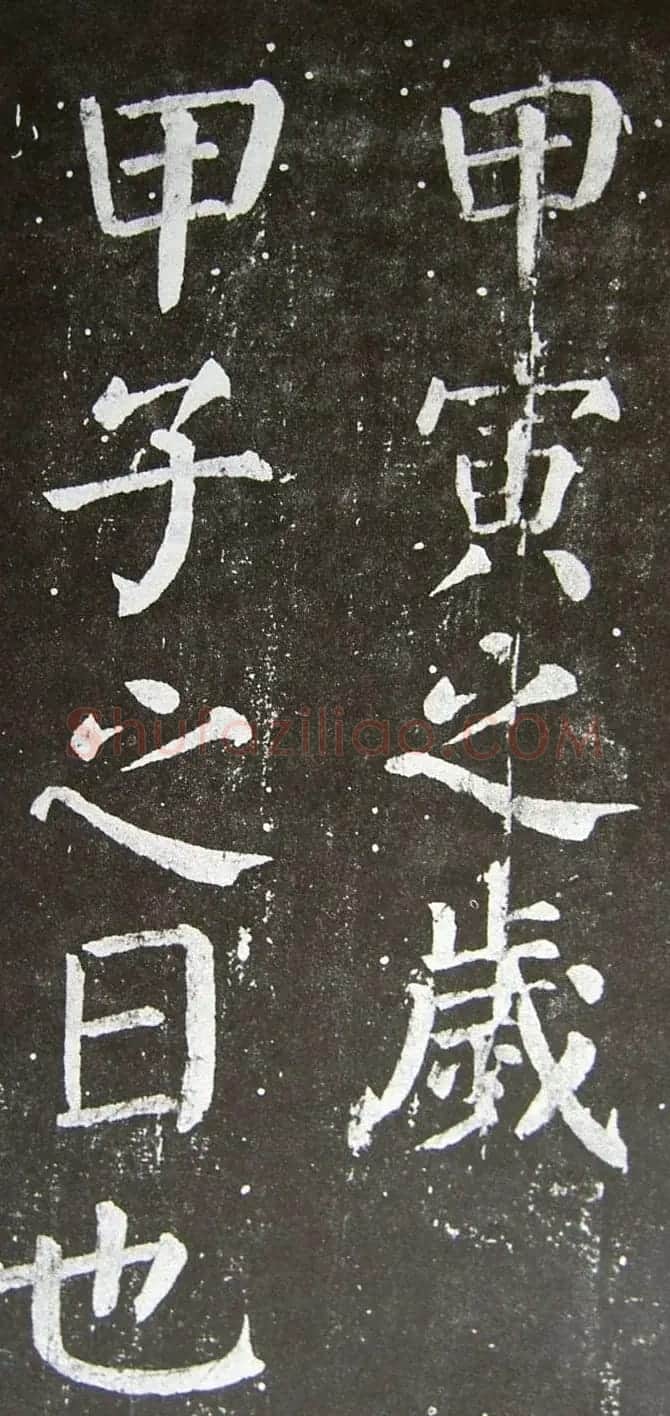 甲寅之歲
甲子之日也
Shufaziliao.COM